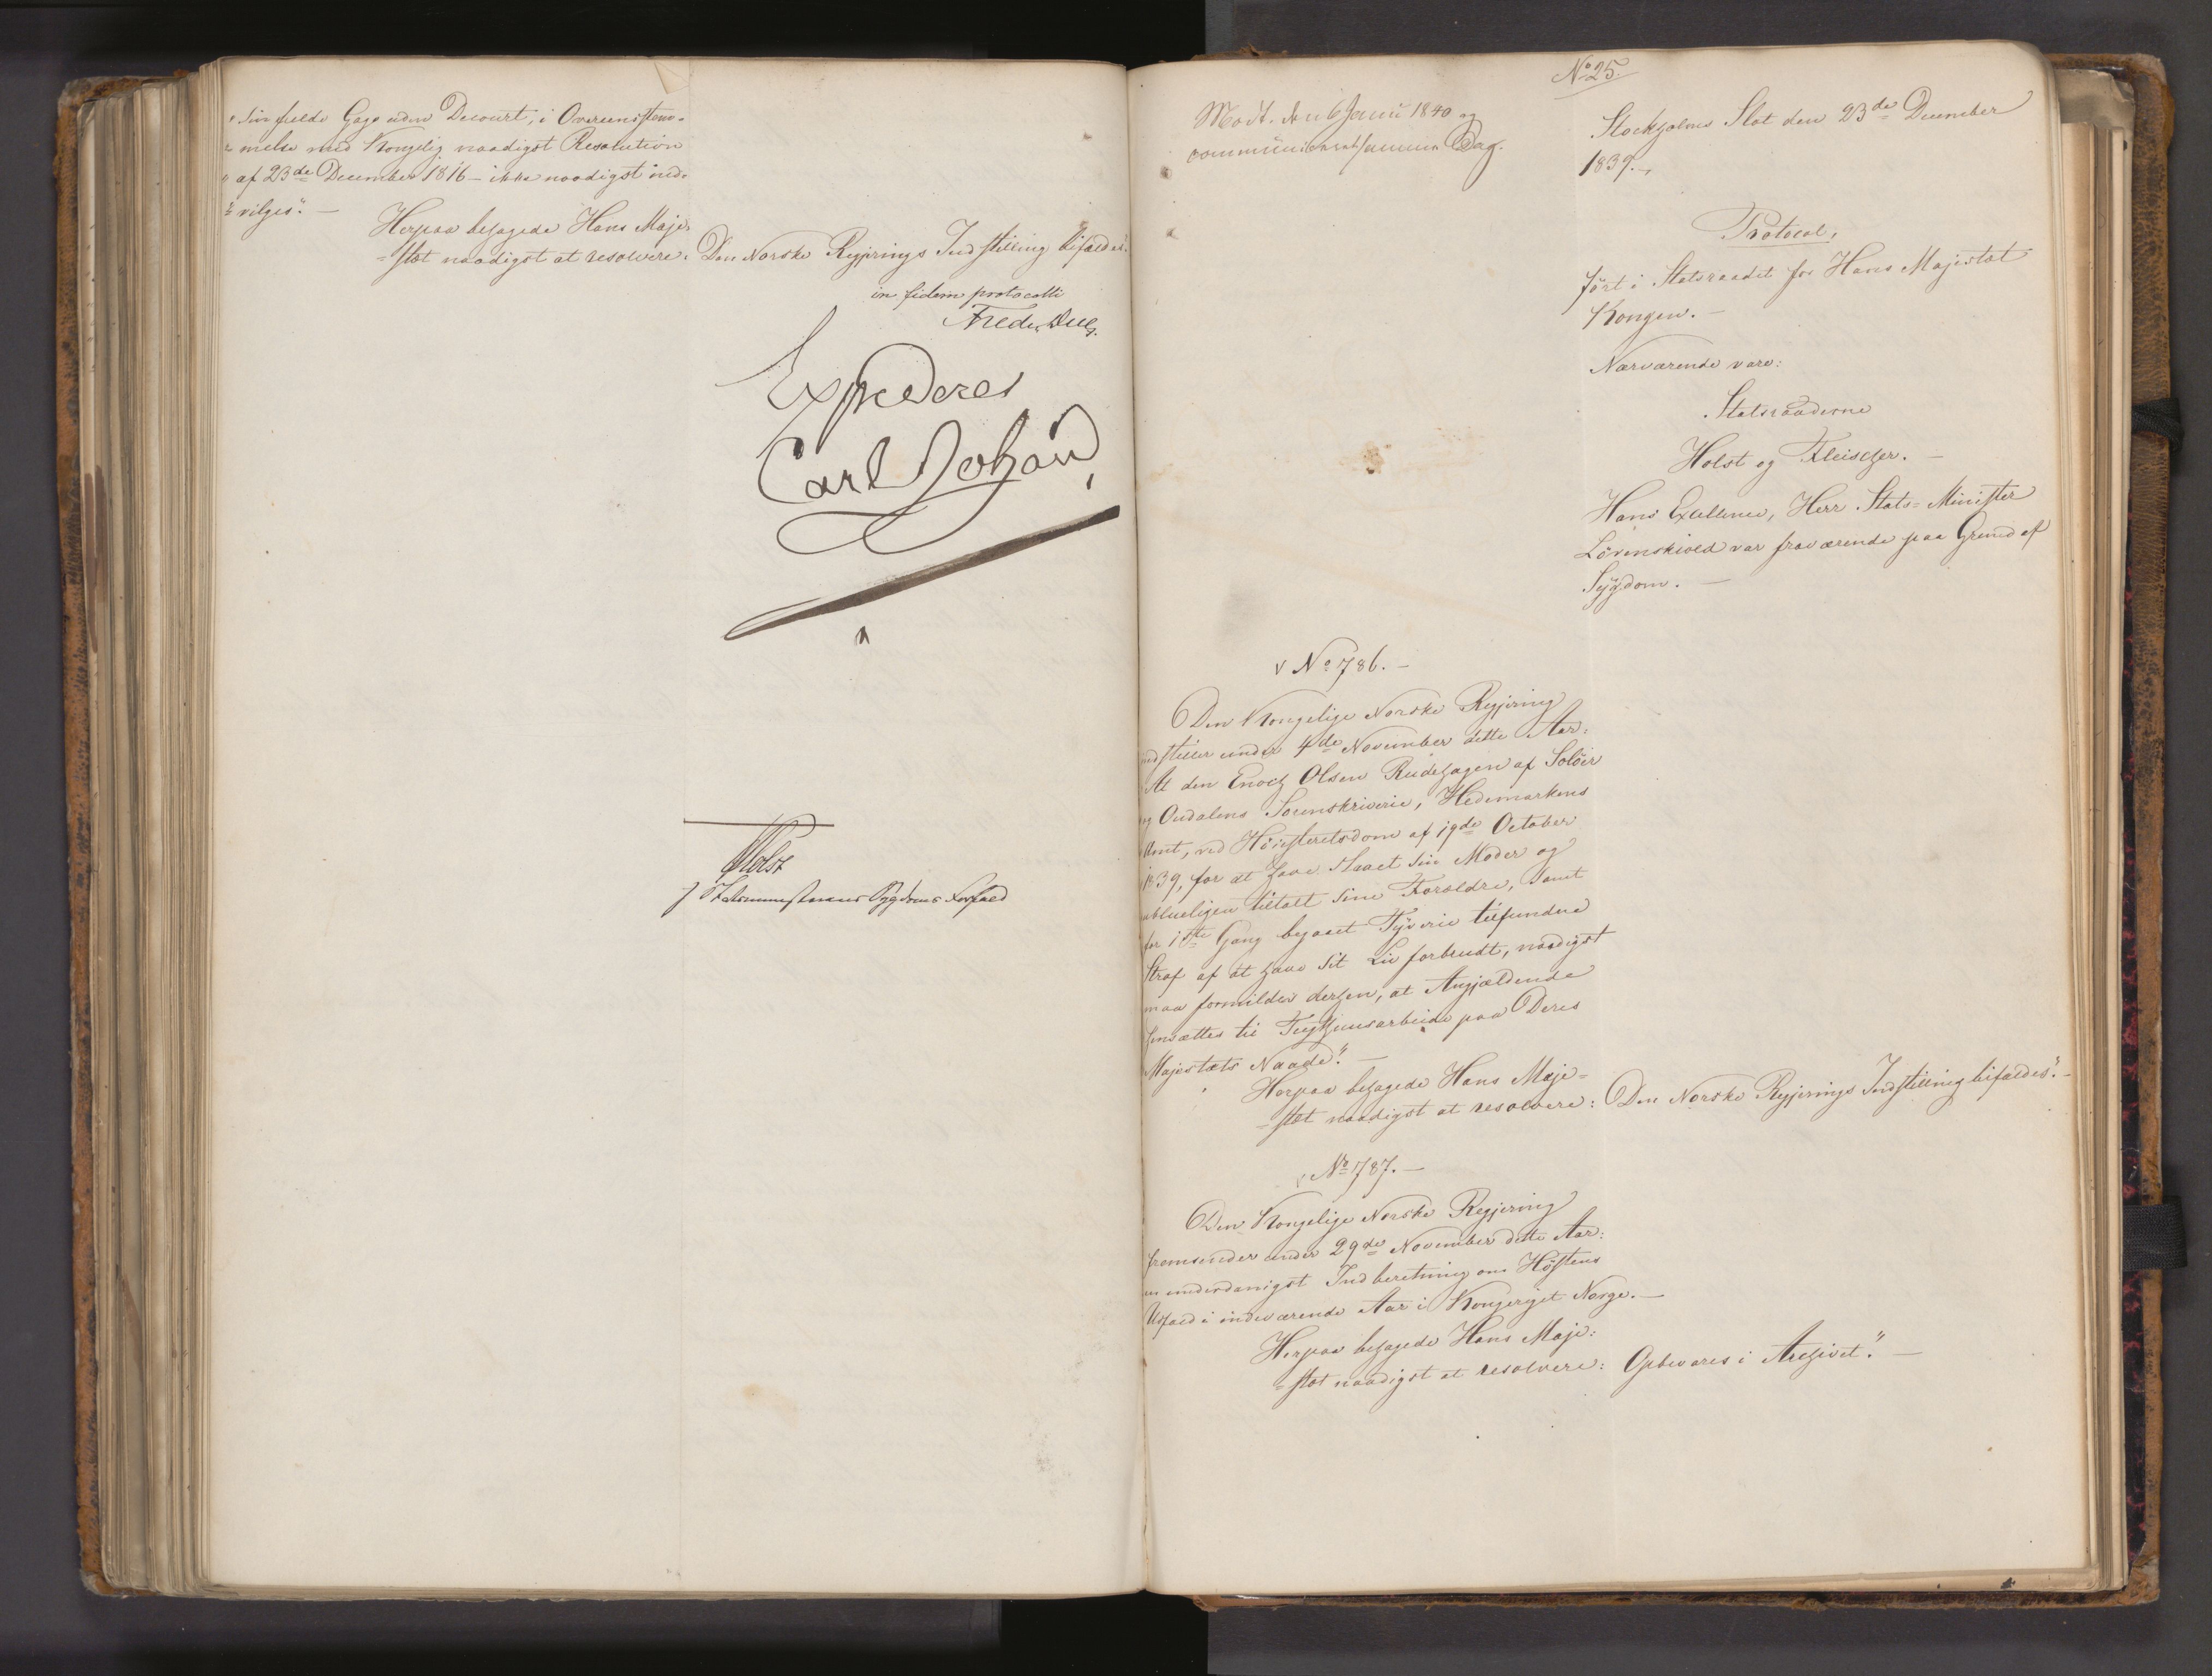 "sin fulde Gage uden Decourt, i Overeenstem-
"melse med Kongelig naadigst Resolution
"af 23de December 1816 - ikke naadigst ind-
"vilges". -
Herpaa behagede Hans Maje-
-stæt naadigst at resolvere: Den Norske Regjerings Indstilling bifaldes".
in fidem protocolli
Freder. Due.
Expederes
Carl Johan
Holst
f Statsministerens Sygdoms Forfald
No 25.
Modt. den 6 Janur 1840 og
communiceret samme Dag.
Stockholms Slot den 23de December
1839. -
Protocol,
ført i Statsraadet for Hans Majestæt
Kongen. -
Nærværende vare:
Statsraaderne
Holst og Fleischer. -
Hans Excellence, Herr Stats-Minister
Løvenskiold var fraværende paa Grund af
Sygdom. -
No 786. -
Den Kongelige Norske Regjering
indstiller under 4de November dette Aar:
At den Enoch Olsen Rudehagen af Soløer
og Oudalens Sorenskriverie, Hedemarkens
Amt, ved Høiesteretsdom af 19de October
1839, for at have slaaet sin Moder og
ublueligen tiltalt sine Forældre, samt
for 1ste Gang begaaet Tyverie tilfundne
Straf af at have sit Liv forbrudt, naadigst
maa formildes derhen, at Angjældende
hensættes til Tugthuusarbeide paa Deres
Majestæts Naade". -
Herpaa behagede Hans Maje-
-stæt naadigst at resolvere: Den Norske Regjerings Indstilling bifaldes". -
No 787. -
Den Kongelige Norske Regjering
fremsender under 29de November dette Aar:
en underdanigst Indberetning om Høstens
Udfald i indeværende Aar i Kongeriget Norge. -
Herpaa behagede Hans Maje-
-stæt naadigst at resolvere: Opbevares i Archivet". -